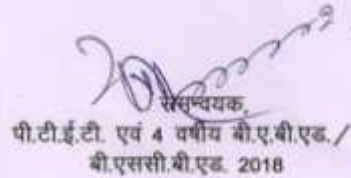 समन्वयक,
पी.टी.ई.टी. एवं 4 वर्षीय बी.ए.बी.एड./
बी.एससी.बी.एड. 2018